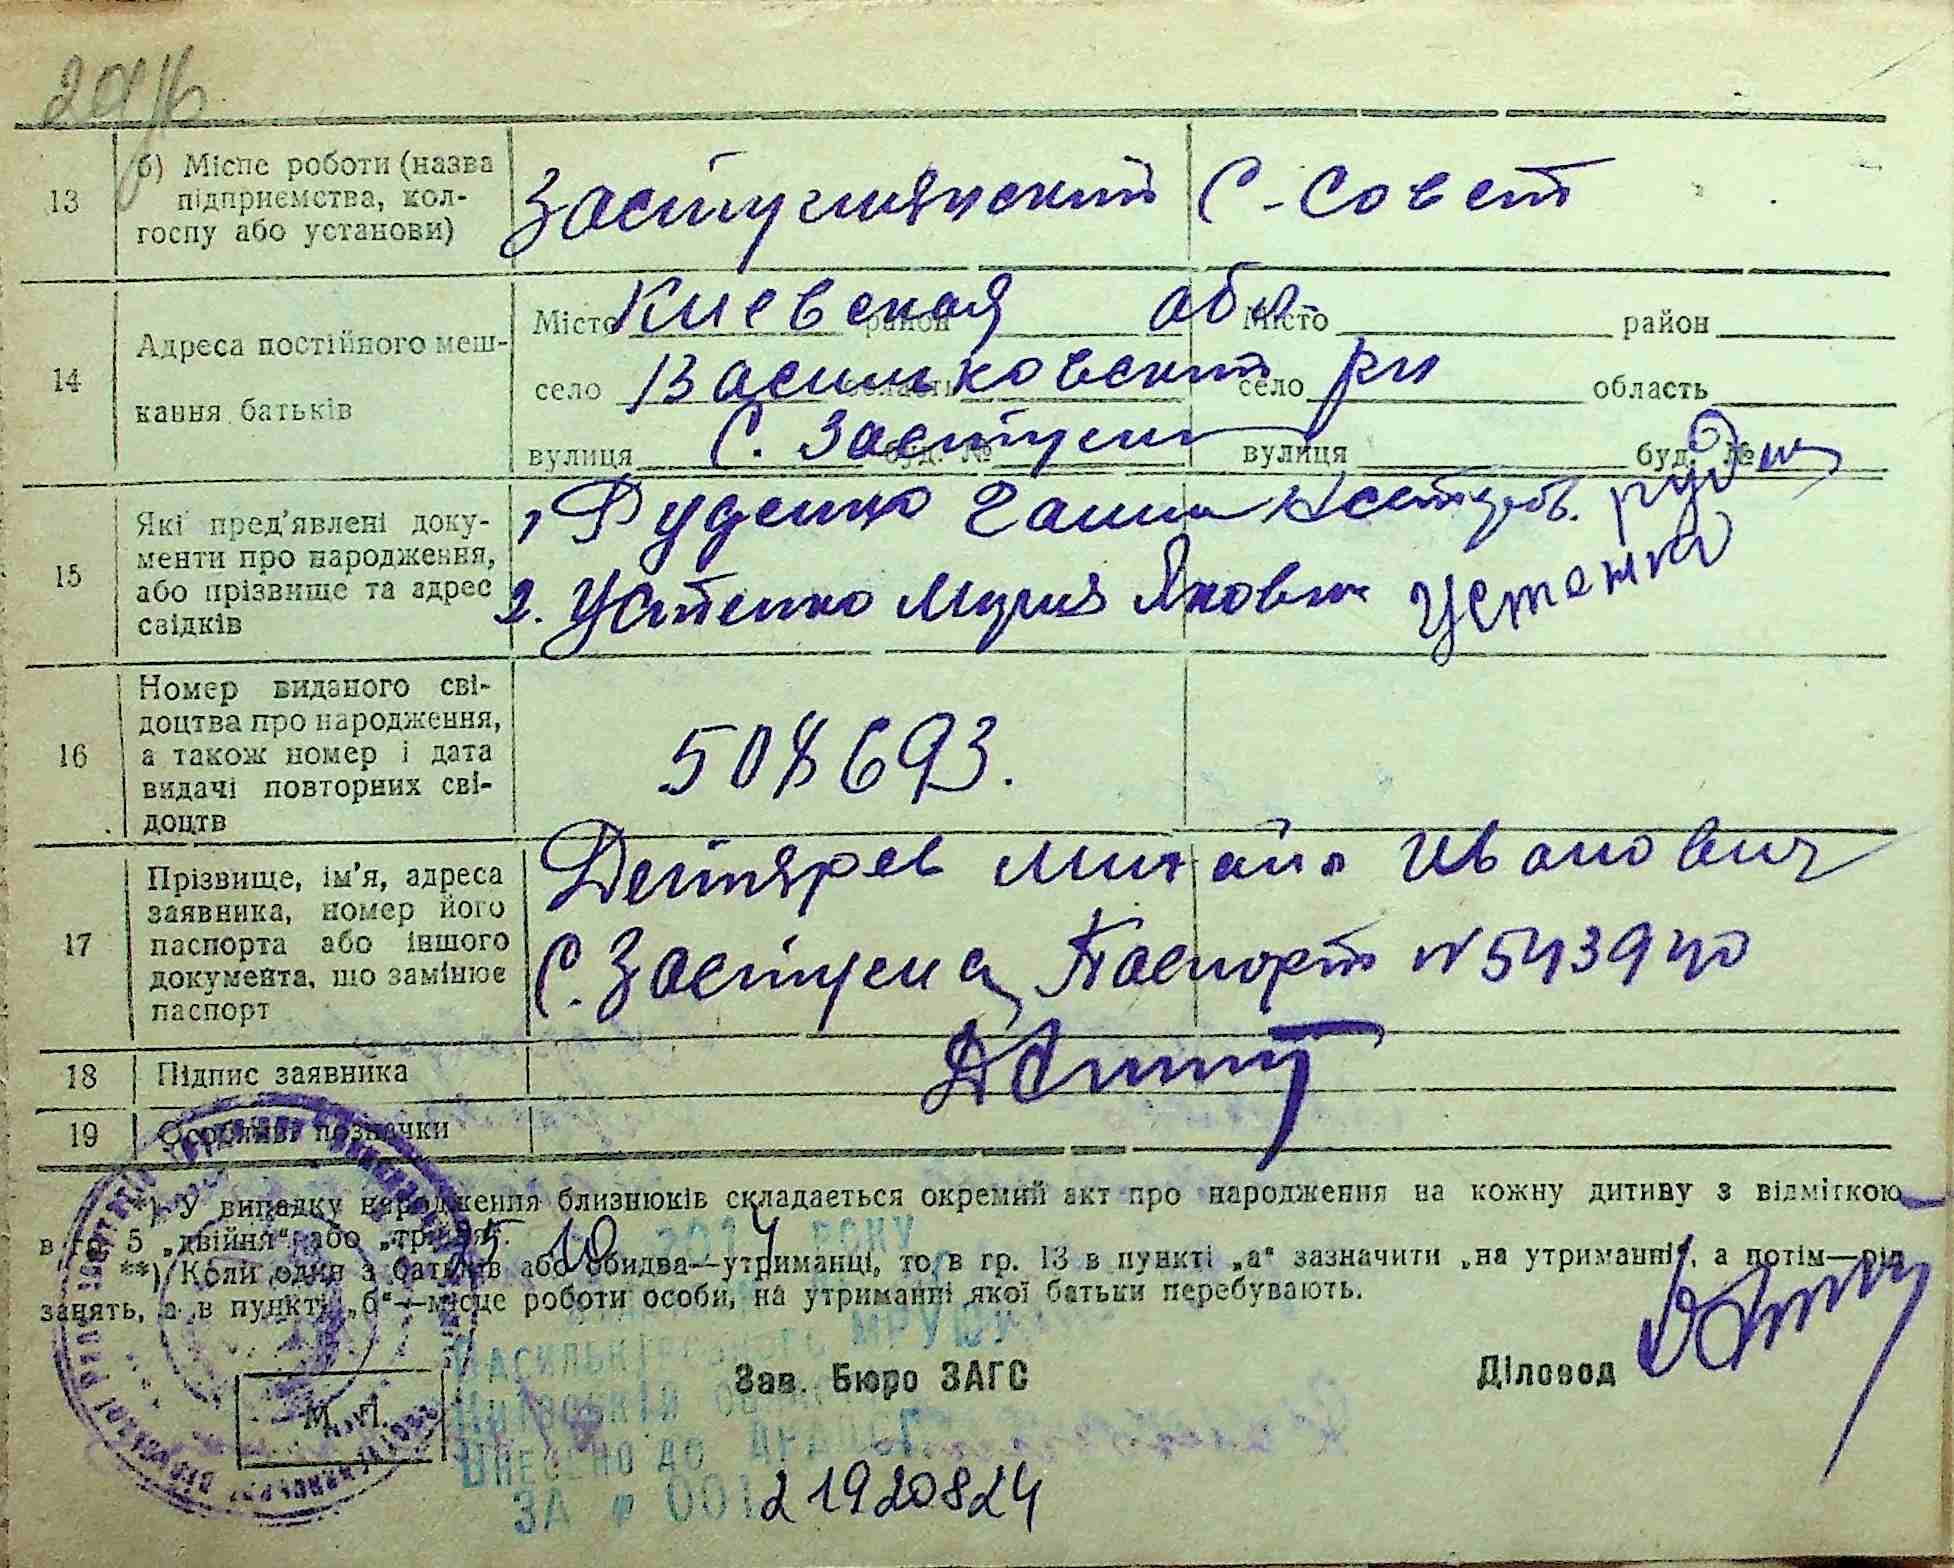 13
б) Місце роботи (назва
підприємства, кол-
госпу або установи)
Застугнянский С-Совет
14
Адреса постійного меш-
кання батьків
Місто район Місто район
Киевская обл.
село область село область
Васильковский рн
вулиця буд. № вулиця буд. №
С. Застугна
15
Які пред'явлені доку-
менти про народження,
або прізвище та адрес
свідків
1 Руденко Ганна
2. Устенко Мария Яковл
Устенко
16
Номер виданого сві-
доцтва про народження,
а також номер і дата
видачі повторних сві-
доцтв
508693.
17
Прізвище, ім'я, адреса
заявника, номер його
паспорта або іншого
документа, що замінює
паспорт
Дегтярев Михайл Иванович
С. Застугна Паспорт № 543940
18
Підпис заявника
19
Особливі позначки
*) У випадку народження близнюків складається окремий акт про народження на кожну дитину з відміткою
в гр. 5 „двійня“ або „трійня“.
**) Коли один з батьків або обидва—утриманці, то в гр. 13 в пункті „а“ зазначити „на утриманні“, а потім—рід
занять, а в пункті „б“—місце роботи особи, на утриманні якої батьки перебувають.
25 10 2014 РОКУ
ВАСИЛЬКІВСЬКОГО МРУЮ
КИЇВСЬКІЙ ОБЛ
Зав. Бюро ЗАГС
Діловод
М. П.
ВНЕСЕНО ДО ДРАЦСГ
ЗА № 00121920824